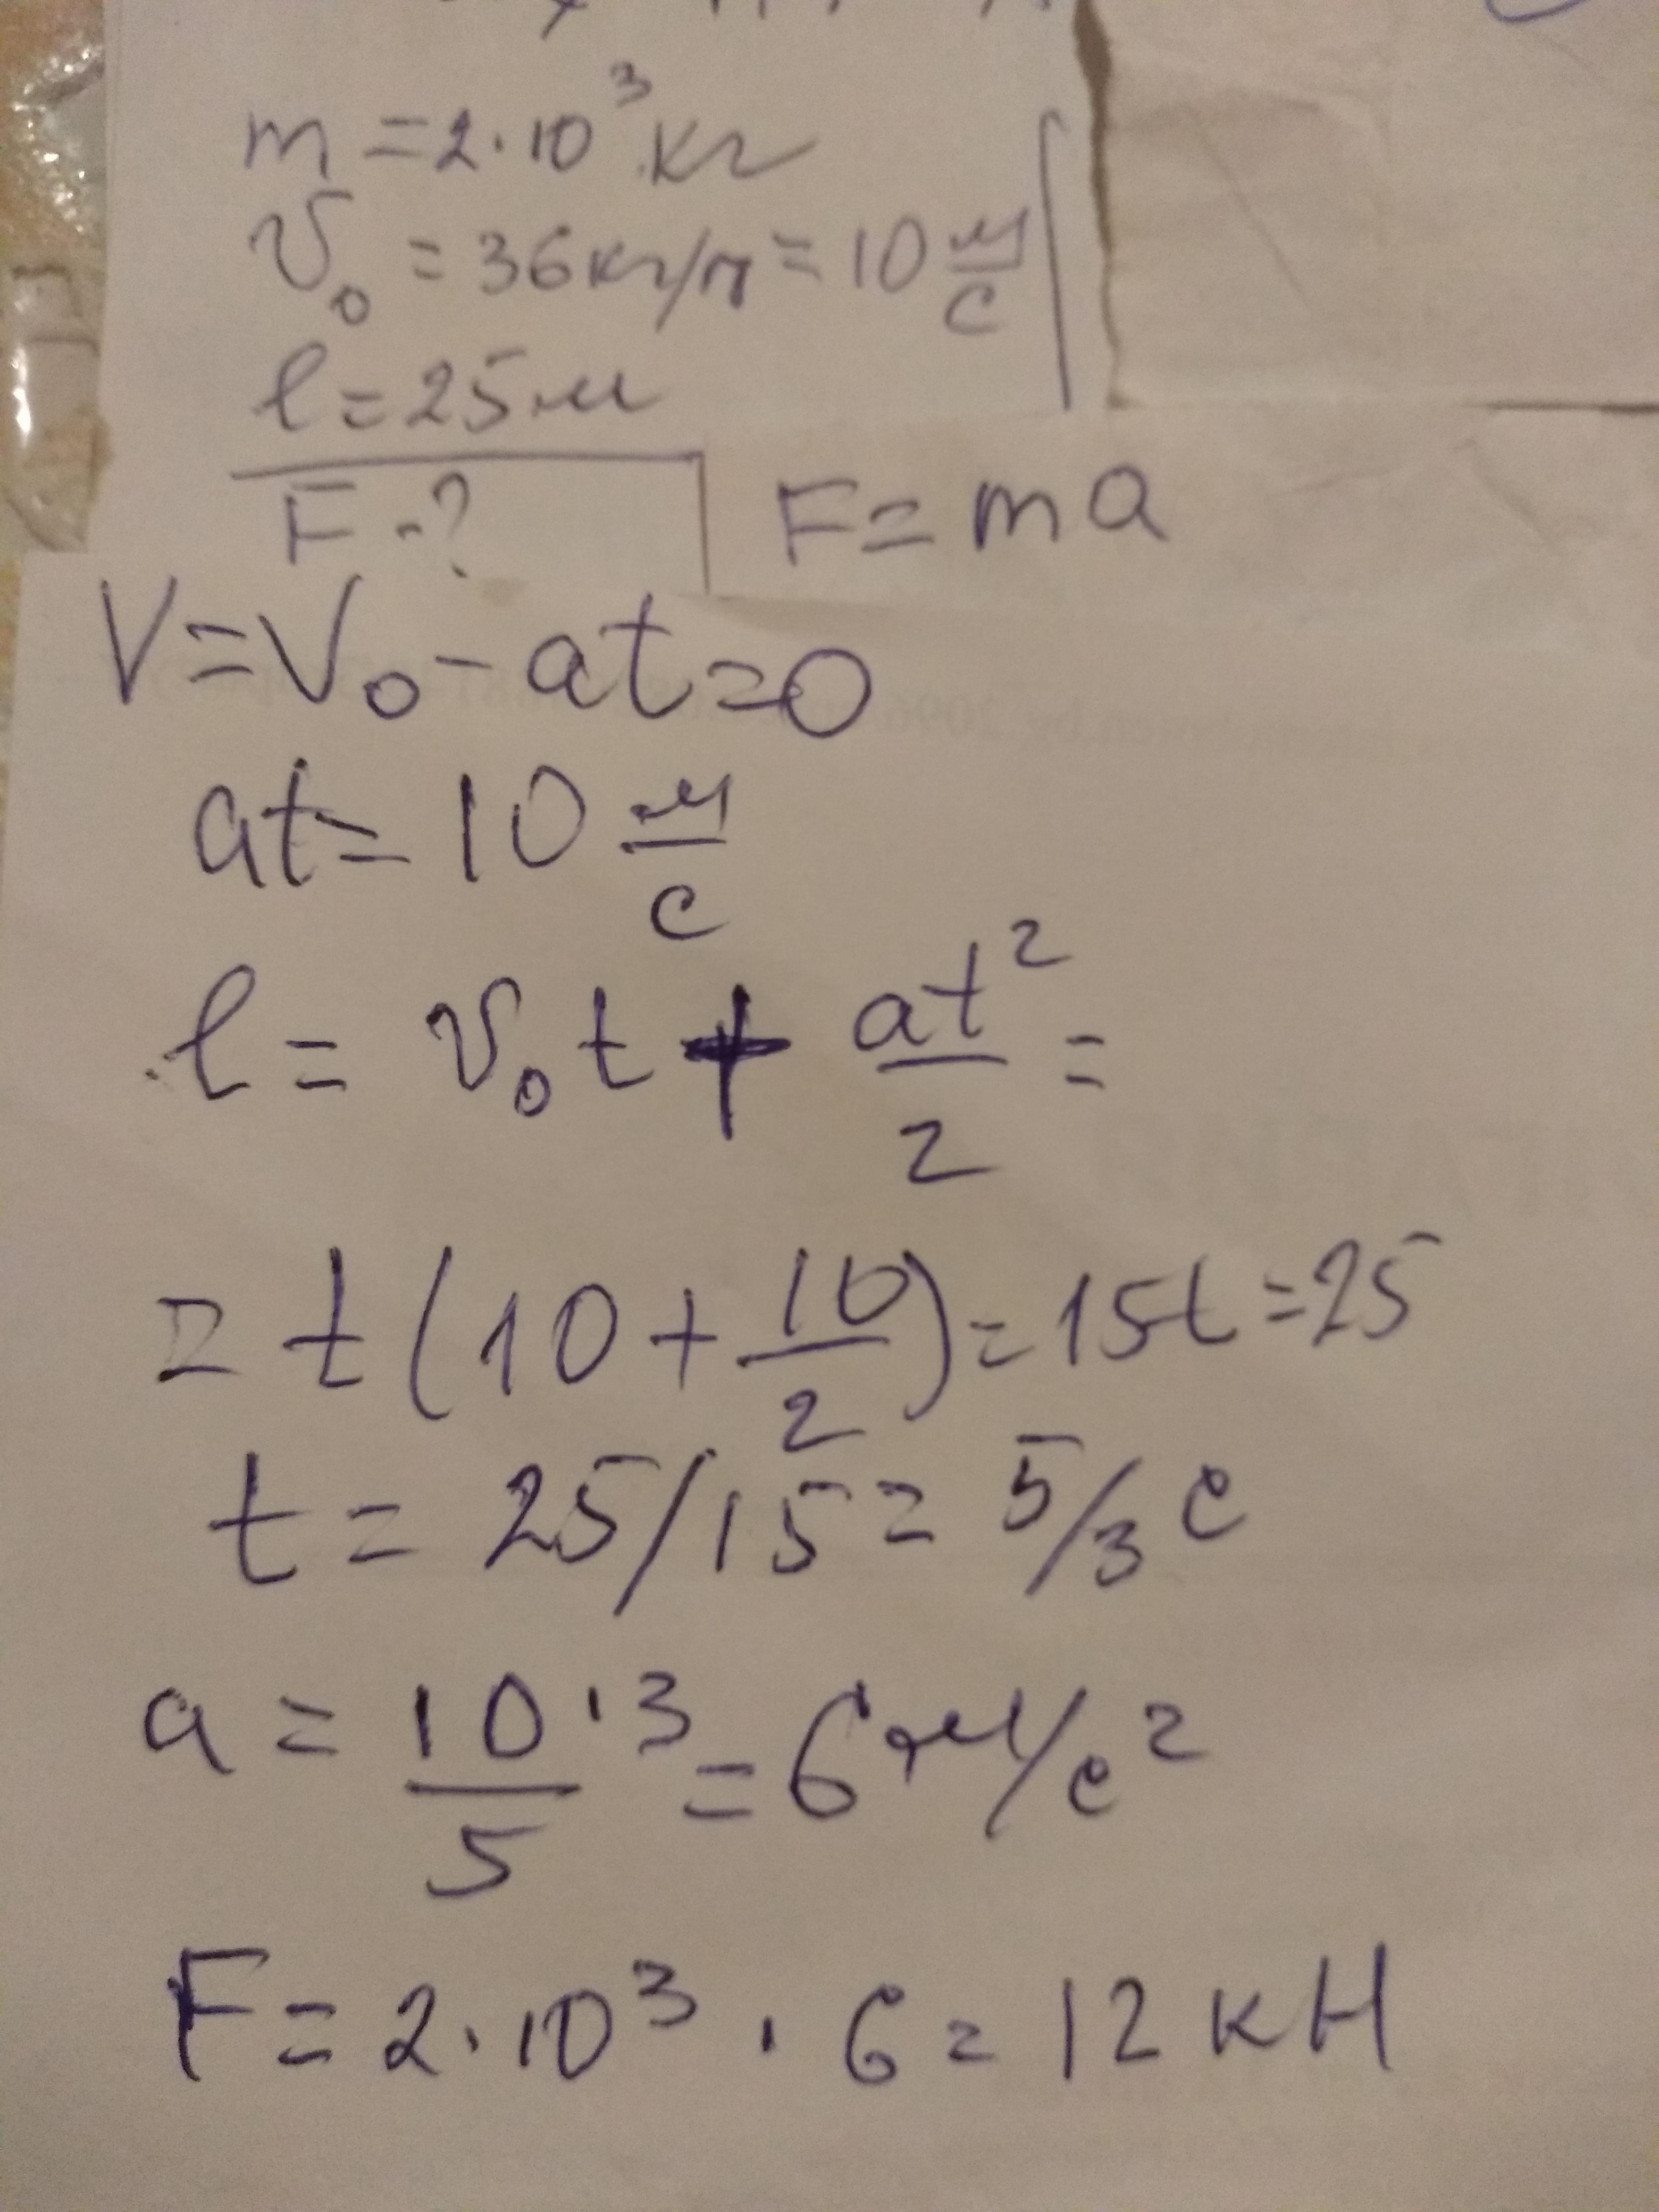 m = 2·10³ кг
v₀ = 36 км/ч = 10 м/с
l = 25 м
F - ? F = ma
V = V₀ - at = 0
at = 10 м/с
l = v₀t + at²/2 =
= t(10 + 10/2) = 15t = 25
t = 25/15 = 5/3 с
a = 10·3/5 = 6 м/с²
F = 2·10³ · 6 = 12 кН